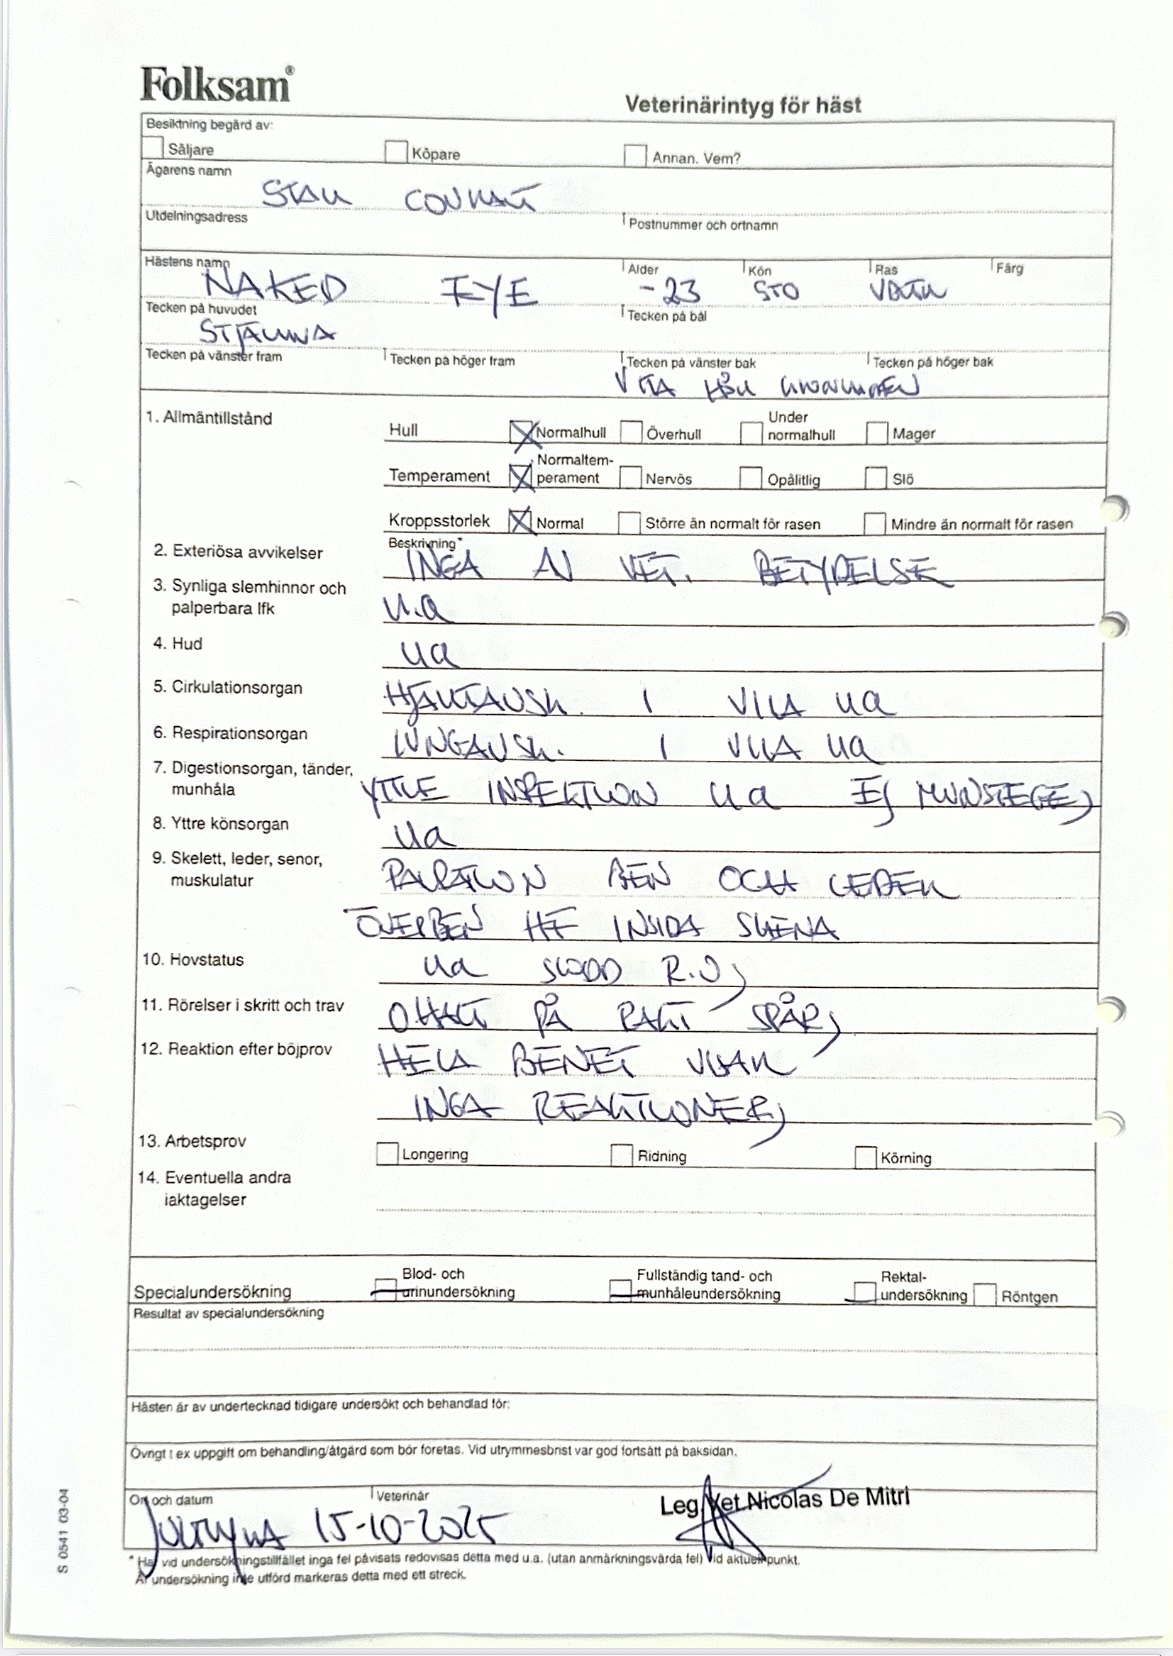 Folksam®
Veterinärintyg för häst
Besiktning begärd av:
Säljare Köpare Annan. Vem?
Ägarens namn
STALL COURANT
Utdelningsadress Postnummer och ortnamn
Hästens namn Ålder Kön Ras Färg
NAKED EYE -23 STO
Tecken på huvudet Tecken på bål
STJÄRNA
Tecken på vänster fram Tecken på höger fram Tecken på vänster bak Tecken på höger bak
VITA HÅR KRONRANDEN
1. Allmäntillstånd
Hull Normalhull Överhull Under normalhull Mager
Temperament Normaltem-perament Nervös Opålitlig Slö
Kroppsstorlek Normal Större än normalt för rasen Mindre än normalt för rasen
2. Exteriösa avvikelser Beskrivning* INGA AV VET. BETYDELSE
3. Synliga slemhinnor och
palperbara lfk u.a
4. Hud ua
5. Cirkulationsorgan HJÄRTAUSK. I VILA ua
6. Respirationsorgan LUNGAUSK. I VILA ua
7. Digestionsorgan, tänder,
munhåla YTTRE INSPEKTION ua EJ MUNSTEGE)
8. Yttre könsorgan ua
9. Skelett, leder, senor,
muskulatur PALPATION BEN OCH LEDER
ÖVERBEN HF INSIDA SKENA
10. Hovstatus ua SKODD R.O)
11. Rörelser i skritt och trav OHALT PÅ RAKT SPÅR)
12. Reaktion efter böjprov HELA BENET VISAR
INGA REAKTIONER)
13. Arbetsprov Longering Ridning Körning
14. Eventuella andra
iaktagelser
Specialundersökning Blod- och urinundersökning Fullständig tand- och munhåleundersökning Rektal-undersökning Röntgen
Resultat av specialundersökning
Hästen är av undertecknad tidigare undersökt och behandlad för:
Övrigt t ex uppgift om behandling/åtgärd som bör företas. Vid utrymmesbrist var god fortsätt på baksidan.
Ort och datum Veterinär Leg Vet Nicolas De Mitri
15-10-2025
* Har vid undersökningstillfället inga fel påvisats redovisas detta med u.a. (utan anmärkningsvärda fel) vid aktuell punkt.
Är undersökning inte utförd markeras detta med ett streck.
S 0541 03-04